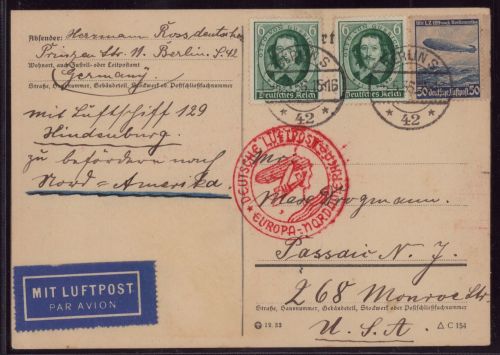 Absender: Herrmann Rossdeutscher
Prinzen Str. 11. Berlin. S. 42
Wohnort, auch Zustell- oder Leitpostamt
Germany.
Straße, Hausnummer, Gebäudeteil, Stockwerk od. Postschließfachnummer
mit Luftschiff 129
Hindenburg
zu befördern nach
Nord=Amerika.
MIT LUFTPOST
PAR AVION
6 6
Deutsches Reich
6 6
Deutsches Reich
Mit LZ 129 nach Nordamerika
50 deutsche Luftpost 50
BERLIN S
42
BERLIN S
42
DEUTSCHE LUFTPOST
EUROPA-NORDAMERIKA
Mr.
Max Brogmann.
Passaic N. J.
268 Monroe Str.
Straße, Hausnummer, Gebäudeteil, Stockwerk oder Postschließfachnummer
U. S. A.
12. 35
C 154